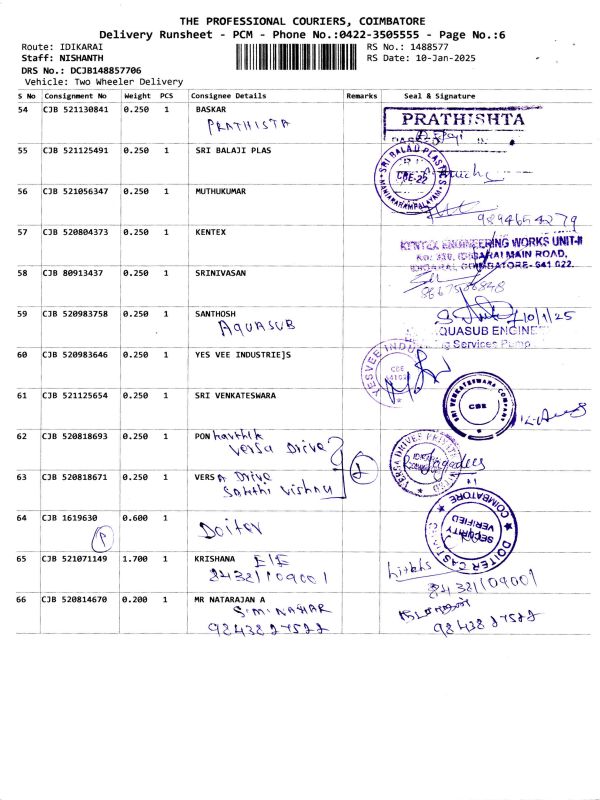 THE PROFESSIONAL COURIERS, COIMBATORE
Delivery Runsheet - PCM - Phone No.:0422-3505555 - Page No.:6
Route: IDIKARAI RS No.: 1488577
Staff: NISHANTH RS Date: 10-Jan-2025
DRS No.: DCJB148857706
Vehicle: Two Wheeler Delivery
S No Consignment No Weight PCS Consignee Details Remarks Seal & Signature
54 CJB 521130841 0.250 1 BASKAR PRATHISHTA
PRATHISTA
55 CJB 521125491 0.250 1 SRI BALAJI PLAS SRI BALAJI PLASTICS
CBE-22
MANIAKARAMPALAYAM
56 CJB 521056347 0.250 1 MUTHUKUMAR
9894654279
57 CJB 520804373 0.250 1 KENTEX KENTEX ENGINEERING WORKS UNIT-II
IDIGARAI MAIN ROAD,
IDIGARAI, COIMBATORE- 641 022.
58 CJB 80913437 0.250 1 SRINIVASAN
59 CJB 520983758 0.250 1 SANTHOSH 10/1/25
AQUASUB AQUASUB ENGINE
Services Pump
60 CJB 520983646 0.250 1 YES VEE INDUSTRIE]S YESVEE INDU
CBE
61 CJB 521125654 0.250 1 SRI VENKATESWARA SRI VENKATESWARA COMPANY
CBE
62 CJB 520818693 0.250 1 PON harthik VERSA DRIVES PRIVATE LIMITED
Versa Drive
63 CJB 520818671 0.250 1 VERSA Drive 2
Sakthi Vishnu
64 CJB 1619630 0.600 1 Doiter DOITER CAST
COIMBATORE
SECURITY
VERIFIED
P
65 CJB 521071149 1.700 1 KRISHANA E/E
66 CJB 520814670 0.200 1 MR NATARAJAN A
S.M. NAGAR
9843827522 9843827522